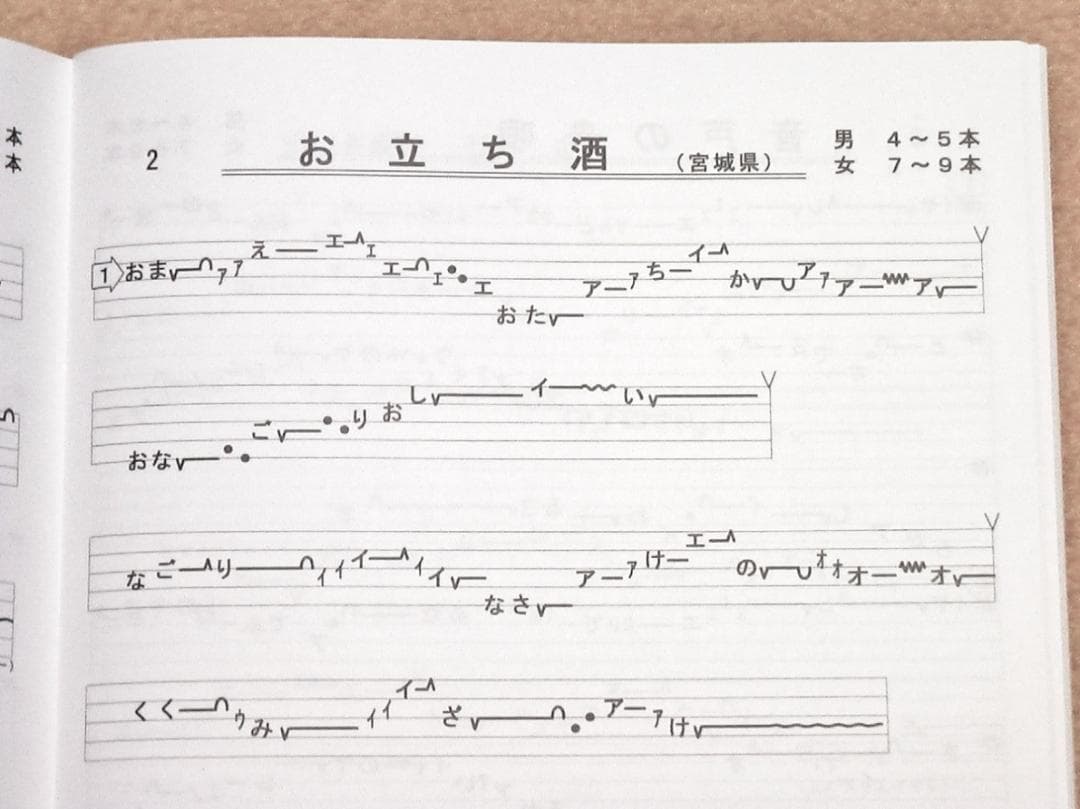 本
本
2 お立ち酒 (宮城県) 男 4～5本
女 7～9本
1 おまァァえーエーェエーェェおたアーァちーイーかアァアーア
おなごりおしイーい
なごーりーィィイーィイなさアーァけーエーのォォオーオ
くくーゥみーィィイーざーアーァけ